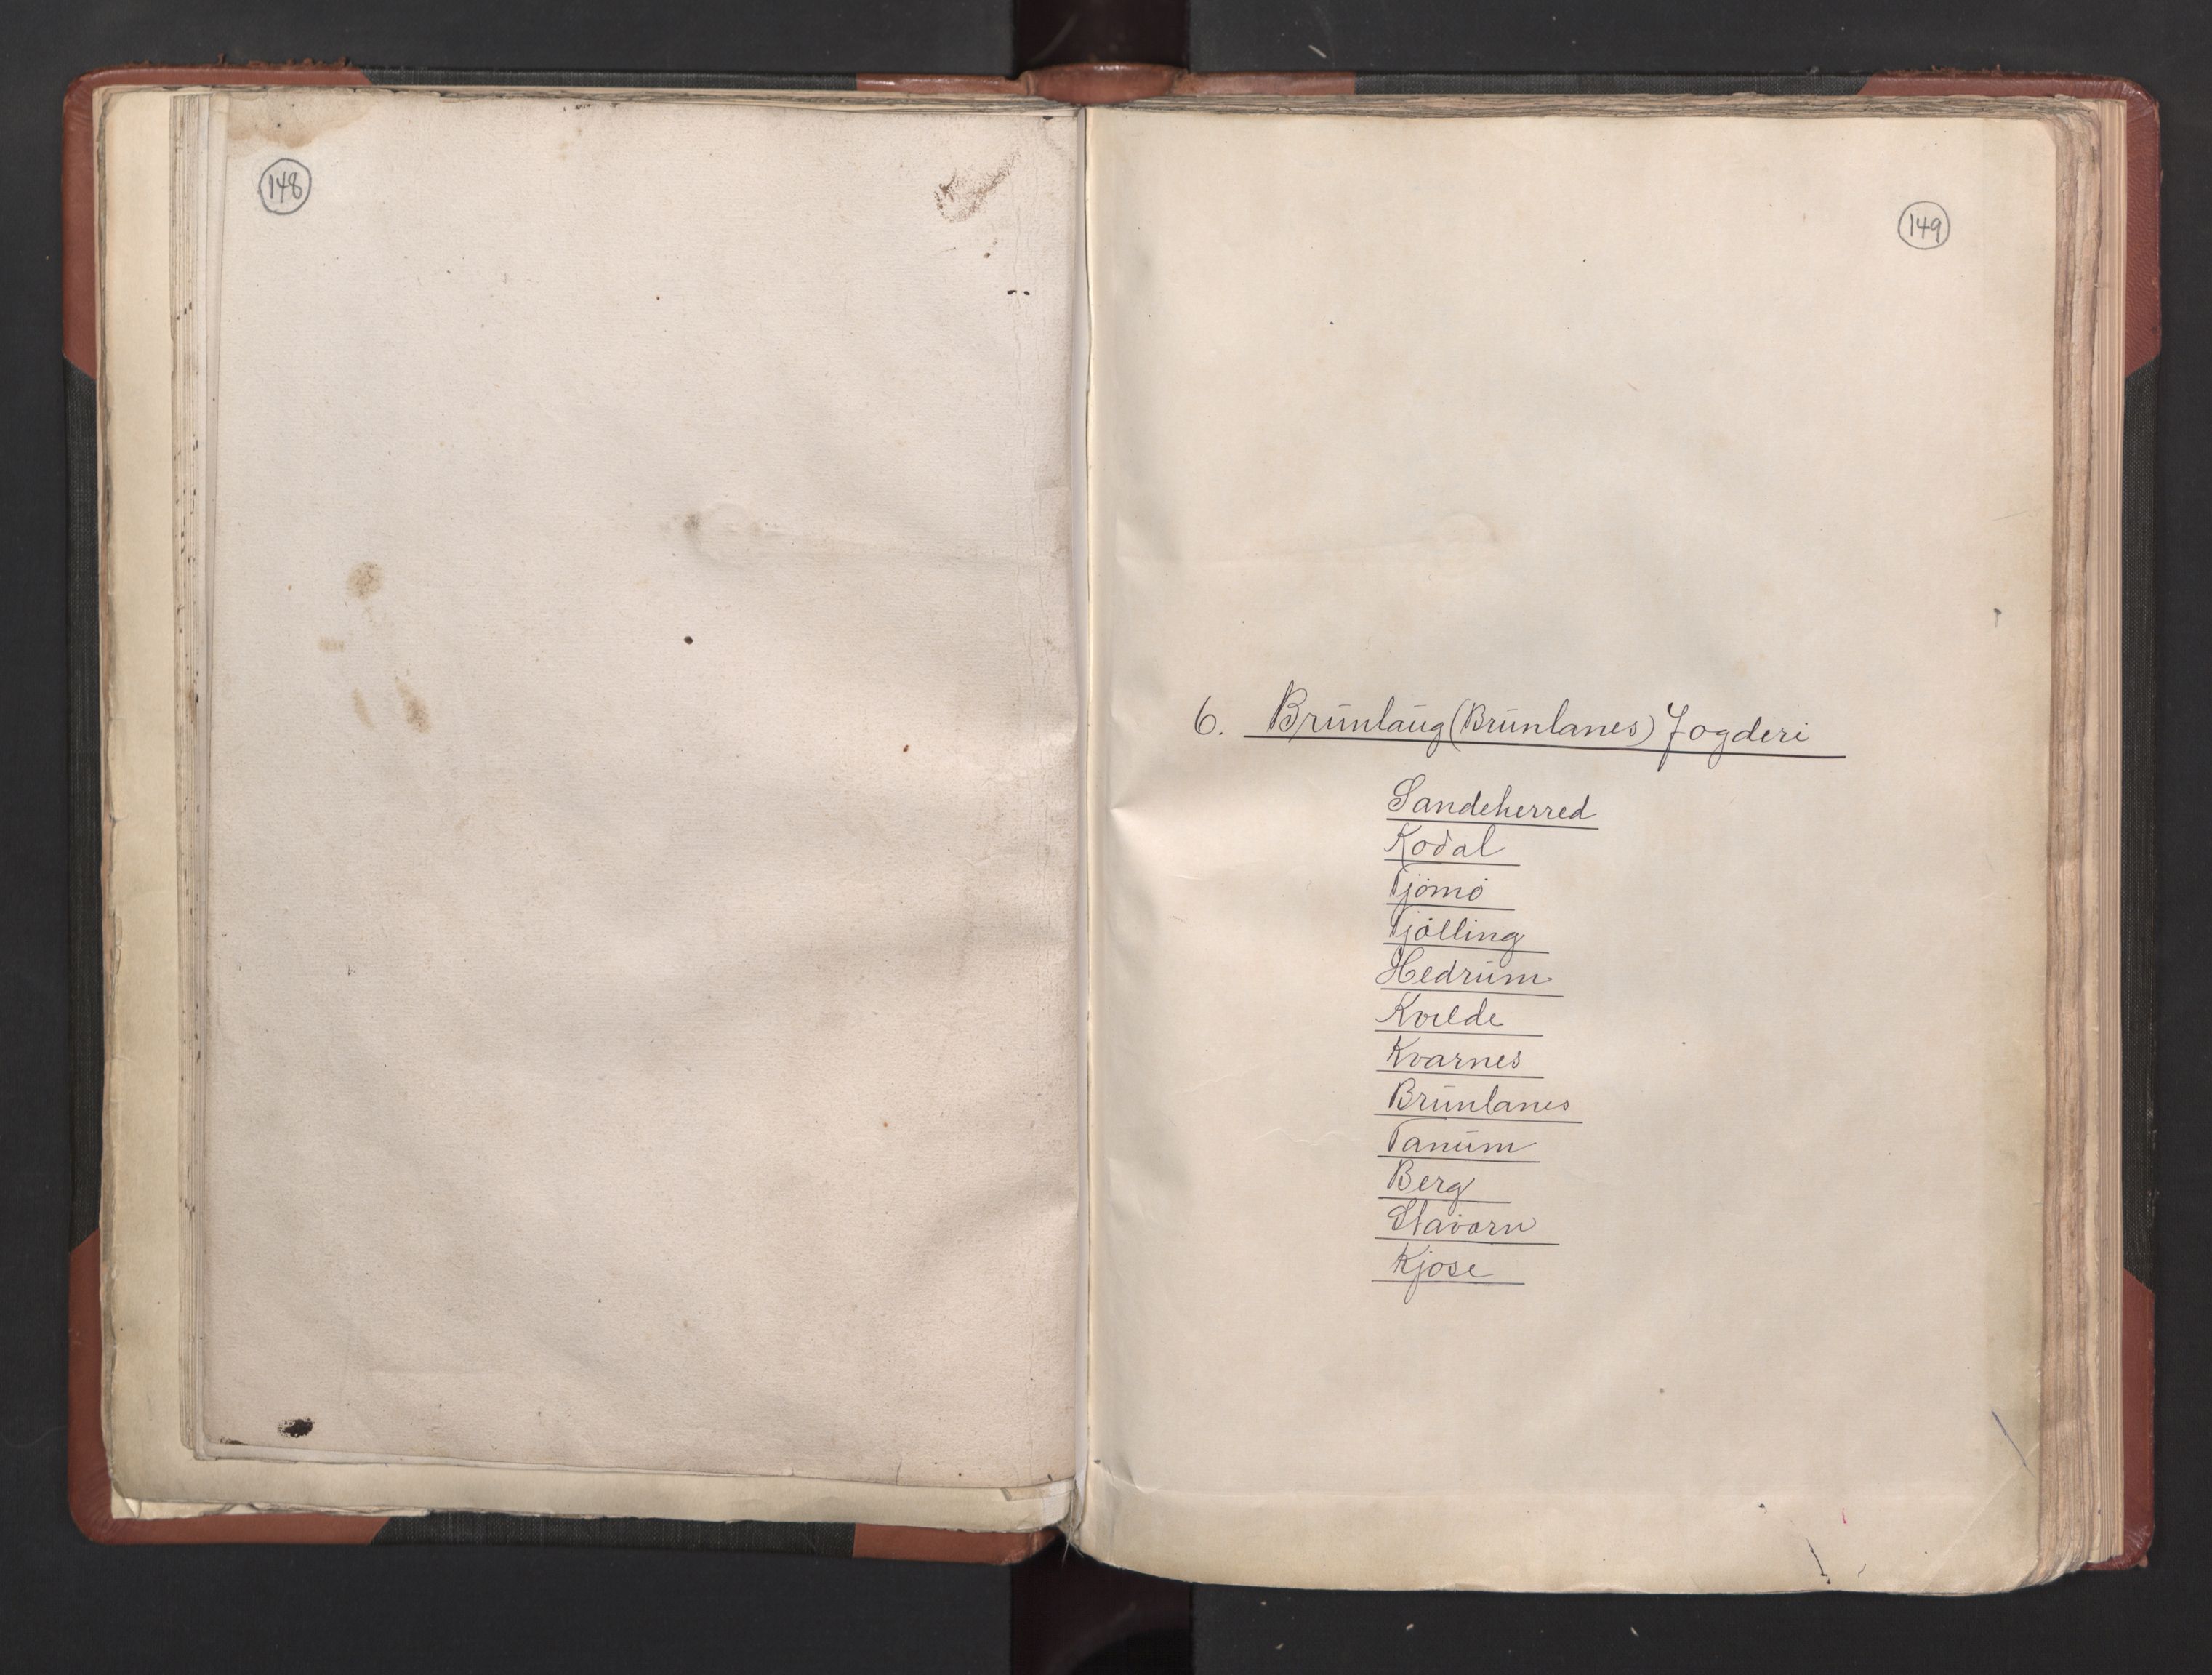 148
149
6. Brünlaüg (Brünlanes) Fogderi
Sandeherred
Kodal
Tjømø
Tjølling
Hedrüm
Kvelde
Kvarnes
Brünlanes
Tanüm
Berg
Stavarn
Kjose